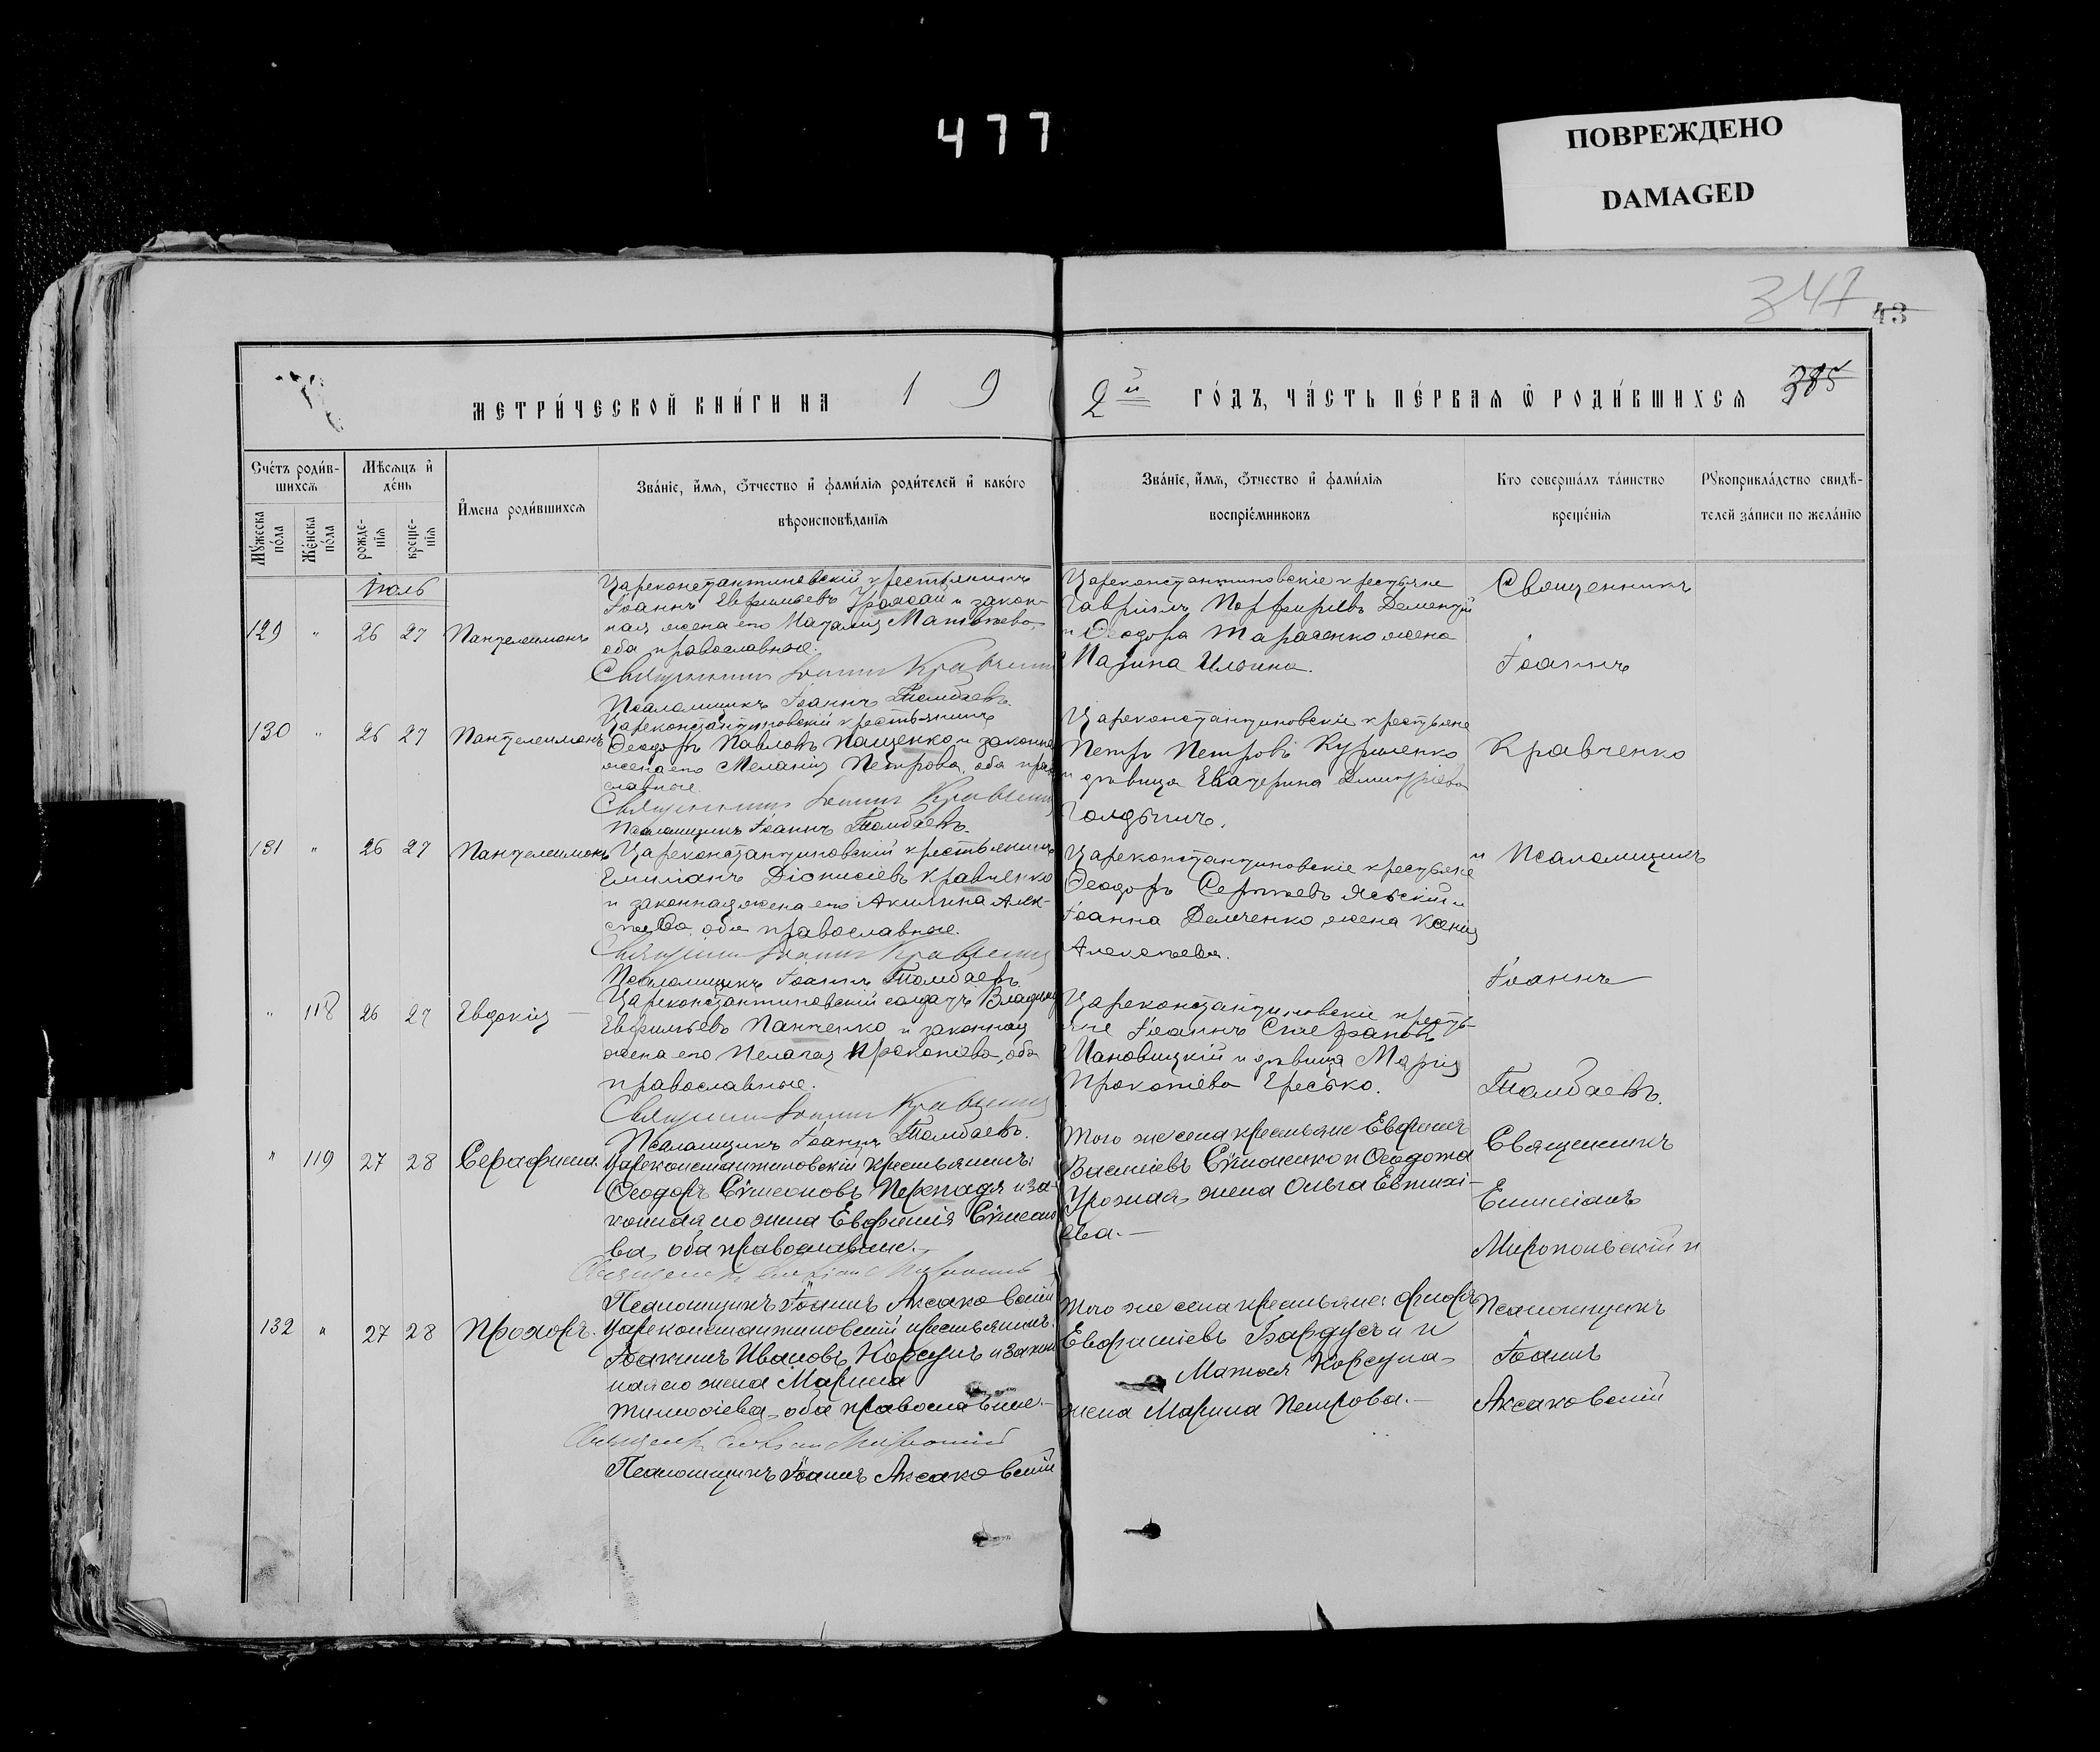 477
ПОВРЕЖДЕНО
DAMAGED
347
43
МЕТРИ́ЧЕСКОЙ КНИ́ГИ НА 1 9
2й ГО́ДЪ, ЧА́СТЬ ПЕ́РВАѦ Ѿ РОДИ́ВШИХСѦ
385
Сче́тъ роди́в-
шихсѧ
Мꙋ́жеска по́ла
Же́нска по́ла
Мѣ́сѧцъ и҆ де́нь
рожде-
нїѧ
креще-
нїѧ
И҆мена роди́вшихсѧ
Зва́нїе, и҆́мѧ, ѻ҆́тчество и҆ фами́лїѧ роди́телей и҆ како́гѡ
вѣроисповѣ́данїѧ
Зва́нїе, и҆́мѧ, ѻ҆́тчество и҆ фами́лїѧ
воспрїе́мниковъ
Кто соверша́лъ та́инство
креще́нїѧ
Рꙋкоприкла́дство свидѣ́-
телей за́писи по жела́нїю
Іюль
129 " 26 27 Пантелеимонъ
Цареконстантиновскій крестьянинъ
Іоаннъ Евфиміевъ Урожай и закон-
ная жена его Наталія Матѳеева,
оба православные.
Священникъ Іоаннъ Кравченко
Псаломщикъ Іоаннъ Толмбаевъ.
Цареконстантиновскіе крестьяне
Гавріилъ Порфиріевъ Дементій
и Ѳеодора Тарасенко жена
Марина Ильина.
130 " 26 27 Пантелеимонъ
Цареконстантиновскій крестьянинъ
Ѳеодоръ Павловъ Пащенко и законная
жена его Меланія Петрова, оба право-
славные
Священникъ Іоаннъ Кравченко
Псаломщикъ Іоаннъ Толмбаевъ.
Цареконстантиновскіе крестьяне
Петръ Петровъ Куриленко
и дѣвица Екатерина Димитріева
131 " 26 27 Пантелеимонъ
Цареконстантиновскій крестьянинъ
Емиліанъ Діонисіевъ Кравченко
и законная жена его Акилина Алек-
сѣева, оба православные.
Священникъ Іоаннъ Кравченко
Псаломщикъ Іоаннъ Толмбаевъ.
Цареконстантиновскіе крестьяне
Ѳеодоръ Сергѣевъ и
Іоанна Демченко жена Ксенія
Алексѣева.
" 118 26 27 Евдокія
Цареконстантиновскій солдатъ Владимиръ
Евфиміевъ Панченко и законная
жена его Пелагея Прокопіева, оба
православные.
Священникъ Іоаннъ Кравченко
Псаломщикъ Іоаннъ Толмбаевъ.
Цареконстантиновскіе кресть-
яне Іоаннъ Стефановъ
Чановицкій и дѣвица Марія
Прокопіева Ересько.
Священникъ
Іоаннъ
Кравченко
и Псаломщикъ
Іоаннъ
Толмбаевъ.
" 119 27 28 Серафима.
Цареконстантиновскій крестьянинъ
Ѳеодоръ Сѵмеоновъ Перепадя и за-
конная его жена Евфимія Сѵмеоно-
ва, оба православные.
Псаломщикъ Іоаннъ Аксаковскій
Того же села крестьяне Евфимій
Василіевъ Сѵмоненко и Ѳеодота
Урожая жена Ольга Евтихі-
ева.
132 " 27 28 Прохоръ.
Цареконстантиновскій крестьянинъ
Іоакимъ Ивановъ Корсунъ и закон-
ная его жена Марина
Тимоѳіева, оба православные.
Псаломщикъ Іоаннъ Аксаковскій
Того же села крестьяне: Флоръ
Евфиміевъ Бардусъ и
Матѳея Корсуна
жена Марина Петрова.
Священникъ
Емиліанъ
Миропольскій и
Псаломщикъ
Іоаннъ
Аксаковскій